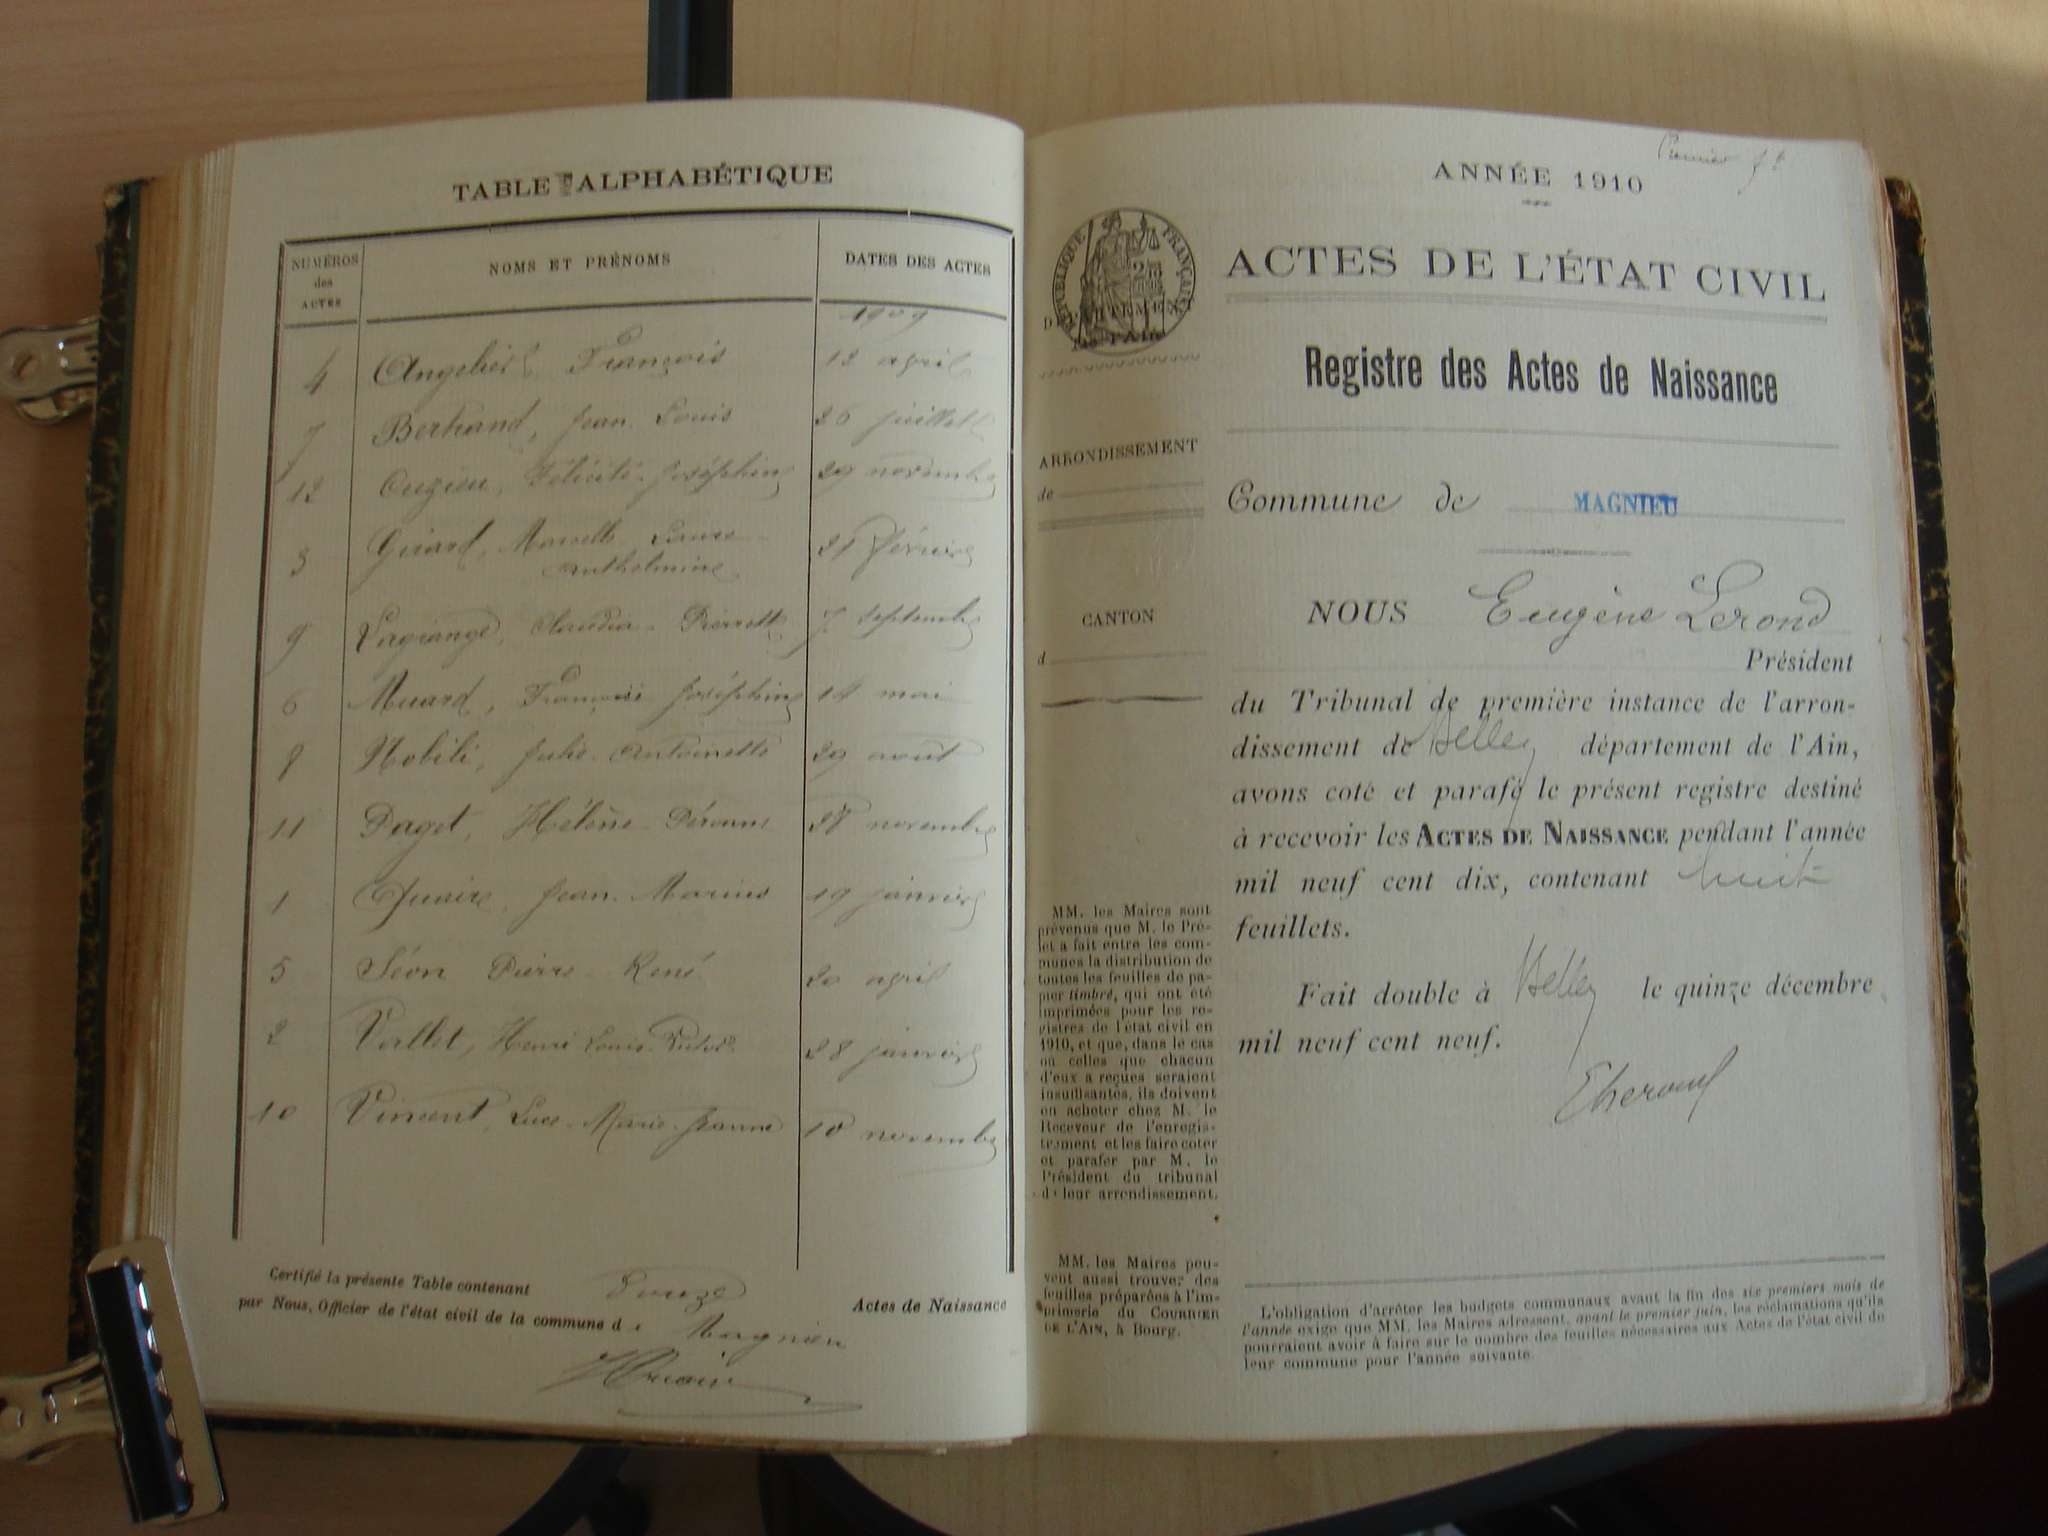 TABLE ALPHABÉTIQUE
NUMÉROS
des
ACTES
NOMS ET PRÉNOMS
DATES DES ACTES
1909
4 François 12 april
7 Bertrand, Jean Louis 26 juillet
12 Cuzieu, Félicité Joséphine 29 novembre
3 Girard, Marcelle Laure 21 février
Anthelmine
9 Lagrange, Claudia Pierrette 7 septembre
6 Muard, Françoise Joséphine 18 mai
8 Nobili, Julie Antoinette 29 août
11 Paget, Hélène 28 novembre
1 Quaire, Jean Marius 19 janvier
5 Séon Pierre René 20 april
2 Vallet, Henri Louis 28 janvier
10 Vincent, Luce Marie Jeanne 10 novembre
Certifié la présente Table contenant Douze Actes de Naissance
par Nous, Officier de l'état civil de la commune d Magnieu
Premier ft
ANNÉE 1910
RÉPUBLIQUE FRANÇAISE
DÉPARTEMENT
de l'AIN
ARRONDISSEMENT
de
CANTON
d
MM. les Maires sont
prévenus que M. le Pré-
fet a fait entre les com-
munes la distribution de
toutes les feuilles de pa-
pier timbré, qui ont été
imprimées pour les re-
gistres de l'état civil en
1910, et que, dans le cas
où celles que chacun
d'eux a reçues seraient
insuffisantes, ils doivent
en acheter chez M. le
Receveur de l'enregis-
trement et les faire coter
et parafer par M. le
Président du tribunal
de leur arrondissement.
MM. les Maires peu-
vent aussi trouver des
feuilles préparées à l'im-
primerie du COURRIER
DE L'AIN, à Bourg.
ACTES DE L'ÉTAT CIVIL
Registre des Actes de Naissance
Commune de MAGNIEU
NOUS Eugène Lerond
Président
du Tribunal de première instance de l'arron-
dissement de Belley département de l'Ain,
avons coté et parafé le présent registre destiné
à recevoir les ACTES DE NAISSANCE pendant l'année
mil neuf cent dix, contenant huit
feuillets.
Fait double à Belley le quinze décembre
mil neuf cent neuf.
L'obligation d'arrêter les budgets communaux avant la fin des six premiers mois de
l'année exige que MM. les Maires adressent, avant le premier juin, les réclamations qu'ils
pourraient avoir à faire sur le nombre des feuilles nécessaires aux Actes de l'état civil de
leur commune pour l'année suivante.